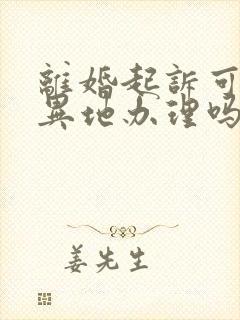 離婚起訴可
異地办理吗
姜先生